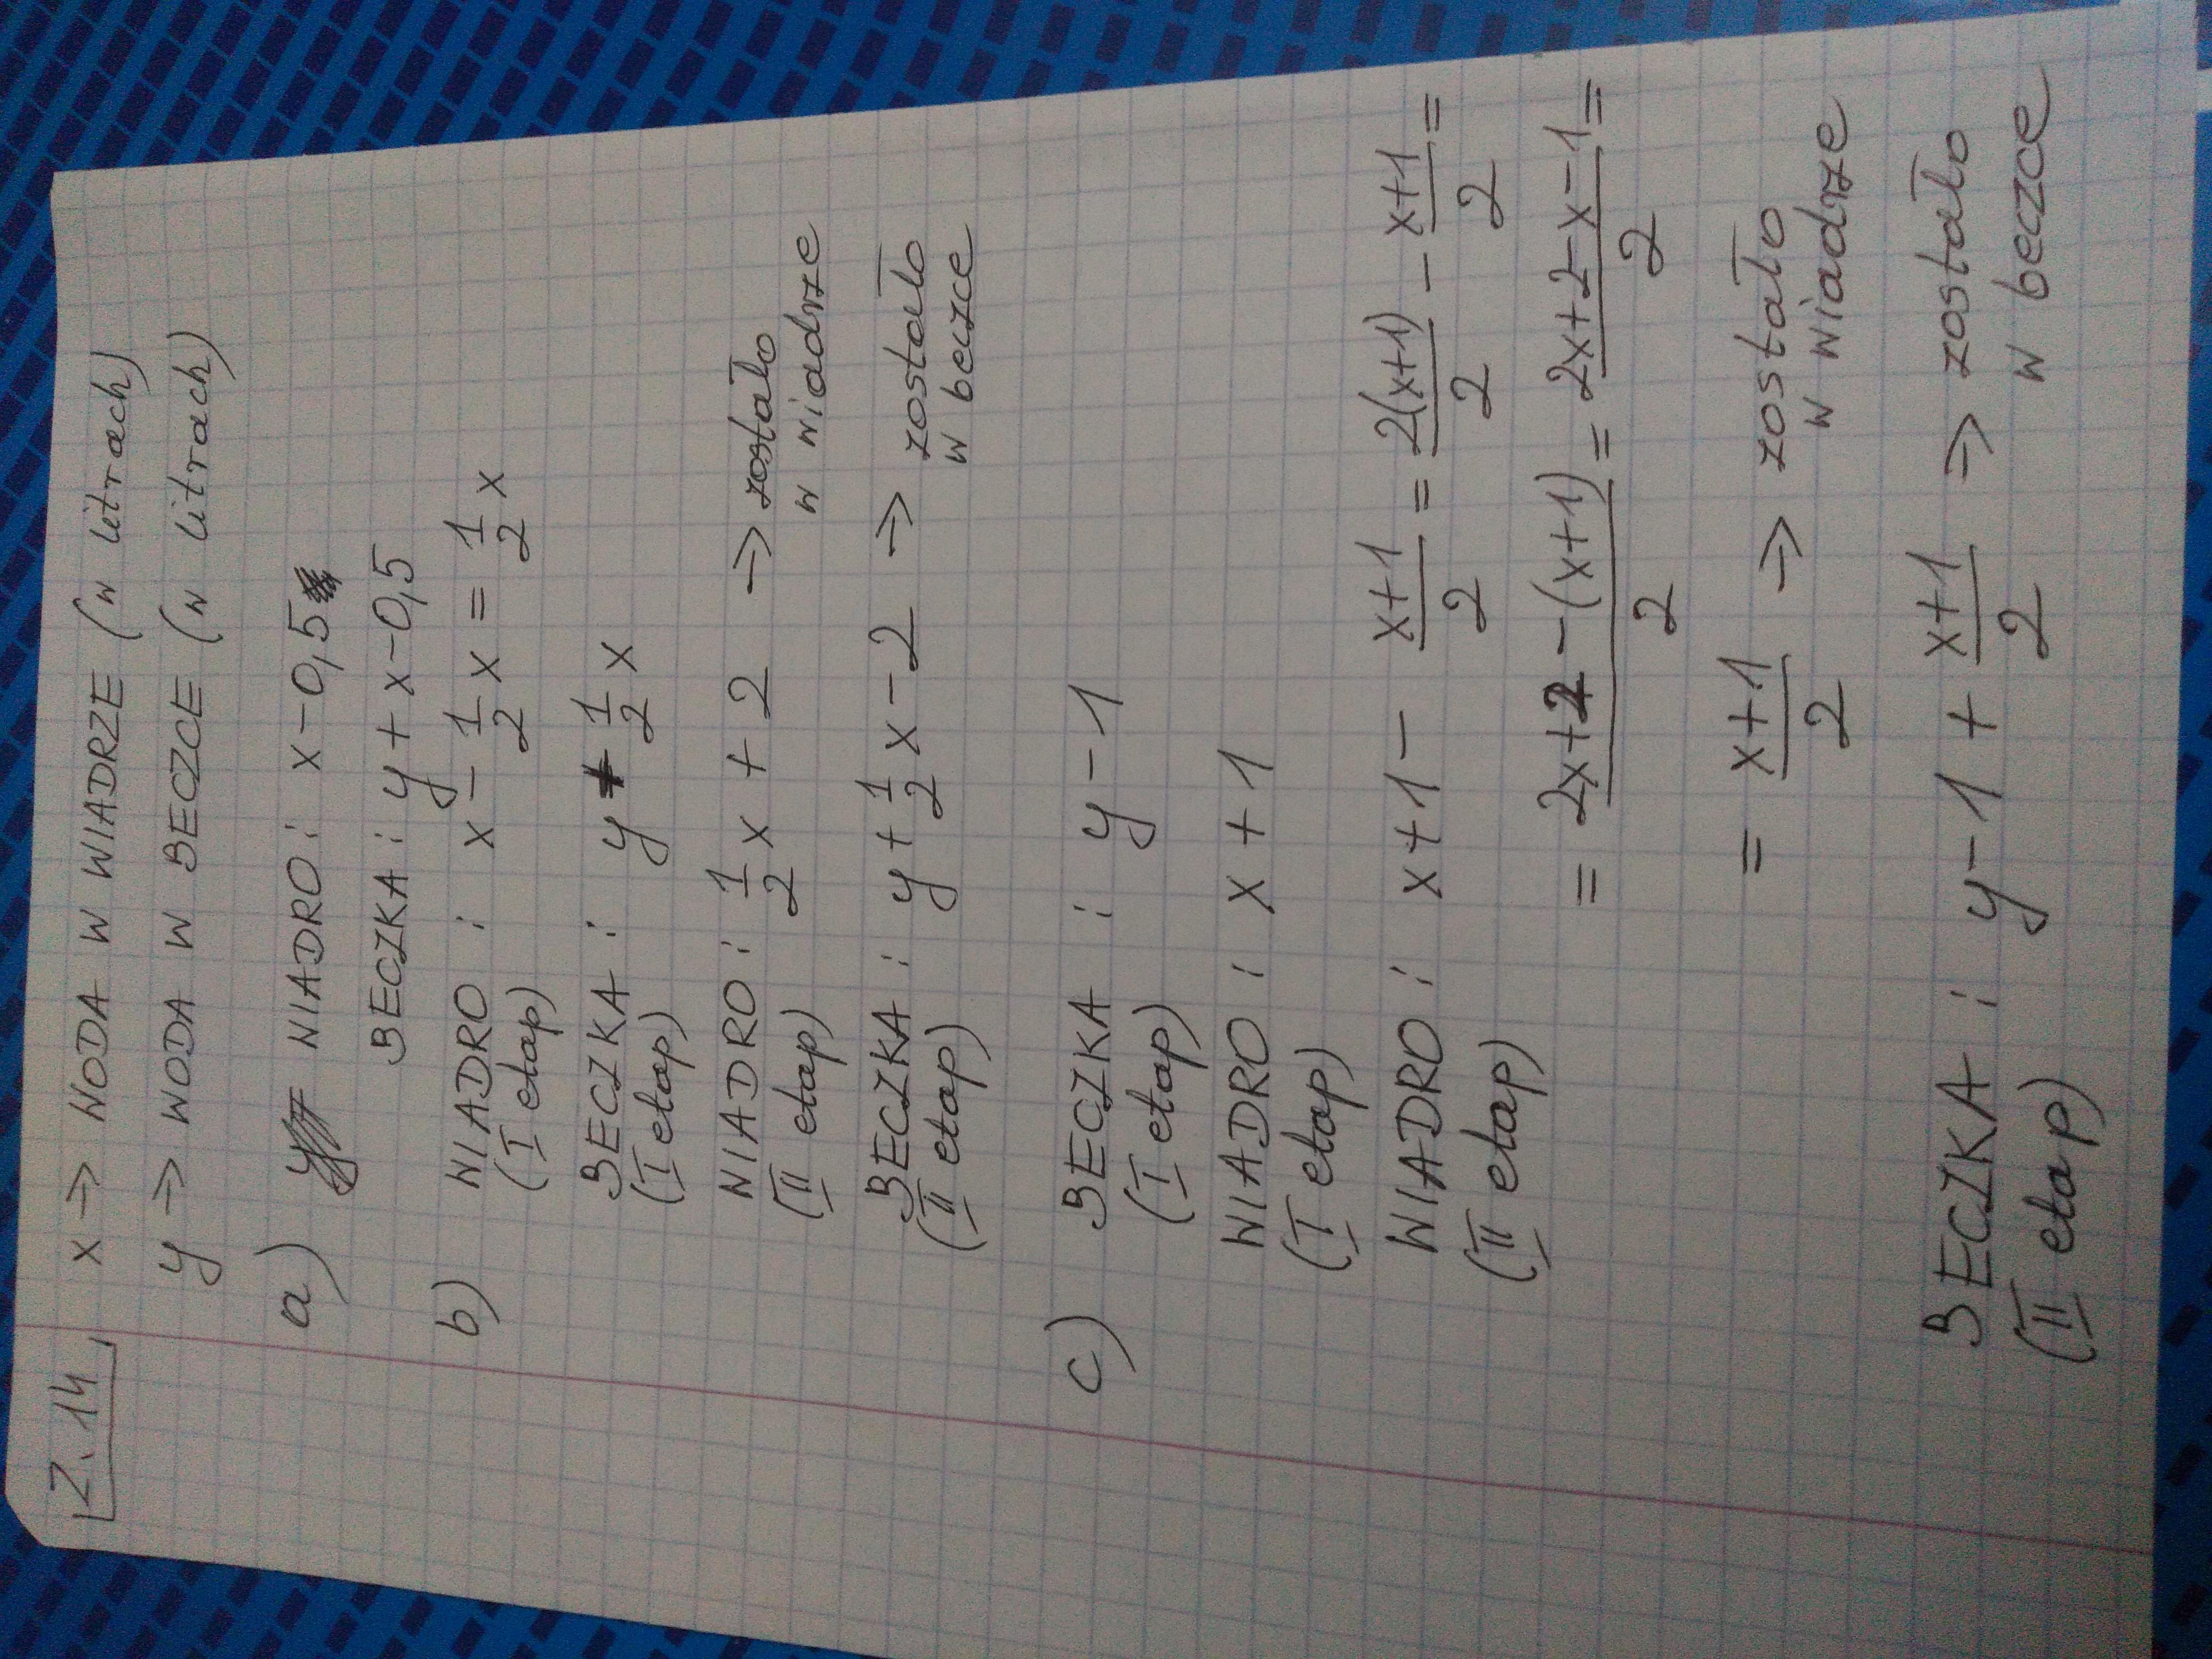 Z.14 x → WODA W WIADRZE (w litrach)
y → WODA W BECZCE (w litrach)
a) WIADRO: x-0,5
BECZKA: y + x-0,5
b) WIADRO: x - 1/2 x = 1/2 x
(I etap)
BECZKA: y + 1/2 x
(I etap)
WIADRO: 1/2 x + 2 → zostało
(II etap) w wiadrze
BECZKA: y + 1/2 x - 2 → zostało
(II etap) w beczce
c) BECZKA: y - 1
(I etap)
WIADRO: x + 1
(I etap)
WIADRO: x+1 - (x+1)/2 = 2(x+1)/2 - (x+1)/2 =
(II etap)
= (2x+2-(x+1))/2 = (2x+2-x-1)/2 =
= (x+1)/2 → zostało
w wiadrze
BECZKA: y-1 + (x+1)/2 → zostało
(II etap) w beczce